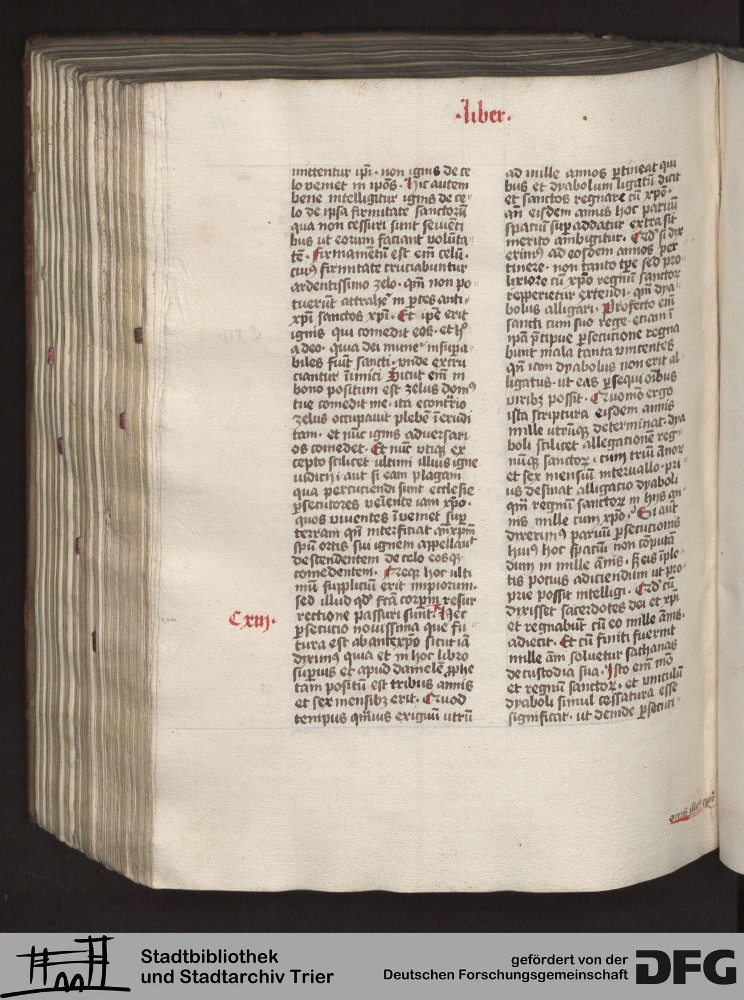 ·liber·
mittentur ipi · non ignis de ce
lo veniet in ipos · Hic autem
bene intelligitur ignis de ce-
lo de ipsa firmitate sanctorū
qua non cessuri sunt seuiēti
bus ut eorum faciant volūta-
tē · Firmamentū est em̄ celū ·
cuiꝰ firmitate cruciabuntur
ardentissimo zelo · qm̄ non po-
tuerūt attrahe᷑ in ꝑtes anti-
xp̄i sanctos xp̄i · Et ipe erit
ignis qui comedit eos · et h̄
a deo · quia dei mune᷑ insuꝑa-
biles fiūt sancti · vnde excru
ciantur īimici Sicut em̄ in
bono positum est zelus domꝰ
tue comedit me · ita econt̄rio
zelus occupauit plebē īerudi
tam · et nūc ignis aduersari
os comedet · Et nūc vtiqꝫ ex
cepto scilicet ultimi illius igne
iudicij · aut si eam plagam
qua percuciendi sunt ecclesie
ꝑsecutores veīente iam xp̄o ·
quos viuentes īveniet suꝑ
terram qn̄ interficiat anxpm̄
spū oris sui ignem appellauit
descendentem de celo eosqꝫ
comedentem · Neqꝫ hoc ulti
mū suppliciū erit impiorum ·
sed illud qd̓ fc̄a corpm̄ resur
rectione passuri sunt · Hec
Cxiij ·
ꝑsecutio nouissima que fu-
tura est ab antexp̄o sicut iā
diximꝰ quia et in hoc libro
suꝑius et apud danielē ꝓphe
tam positū est tribus annis
et sex mensibꝫ erit · Quod
tempus qm̄uis exiguū utrū
ad mille annos ꝑtineat qui
bus et dyabolum ligatū dicit
et sanctos regnare cū xp̄o ·
an eisdem annis hoc paruū
spaciū suꝑ addatur extra sit
merito ambigitur · Qd̓ si dix
erimꝰ ad eosdem annos ꝑer
tinere · non tanto tꝑe sed pro-
lixiore cū xp̄o regnū sanctoꝝ
repperietur extendi · qm̄ dya-
bolus alligari · Profecto em̄
sancti cum suo rege etiam ī
ipa p̄cipue ꝑsecutione regna
bunt mala tanta vincentes
qn̄ iam dyabolus non erit al-
ligatus · ut eas ꝑsequi oībus
viribꝫ possit · Quomō ergo
ista scriptura eisdem annis
mille utrūqꝫ determinat · dya
boli scilicet allegationē reg-
nūqꝫ sanctoꝝ · cum triū ānoꝝ
et sex mensiū interuallo · pri-
us desinat alligatio dyaboli
qm̄ regnū sanctoꝝ in hijs an-
nis mille cum xp̄o · Si aut
dixerimꝰ paruū ꝑsecutionis
huiꝰ hoc spaciū non cōputā-
dum in mille ānis · Sꝫ eis īple-
tis potius adiciendū ut pro-
prie possit intelligi · Qd̓ cū
dixisset sacerdotes dei et xp̄i
et regnabūt cū eo mille ānis ·
adiecit · Et cū finiti fuerint
mille āni soluetur sathanas
de custodia sua · Isto em̄ mō
et regnū sanctoꝝ · et vinculū
dyaboli simul cessatura esse
significat · ut deinde ꝑsecuci-
Stadtbibliothek
und Stadtarchiv Trier
gefördert von der
Deutschen Forschungsgemeinschaft
DFG